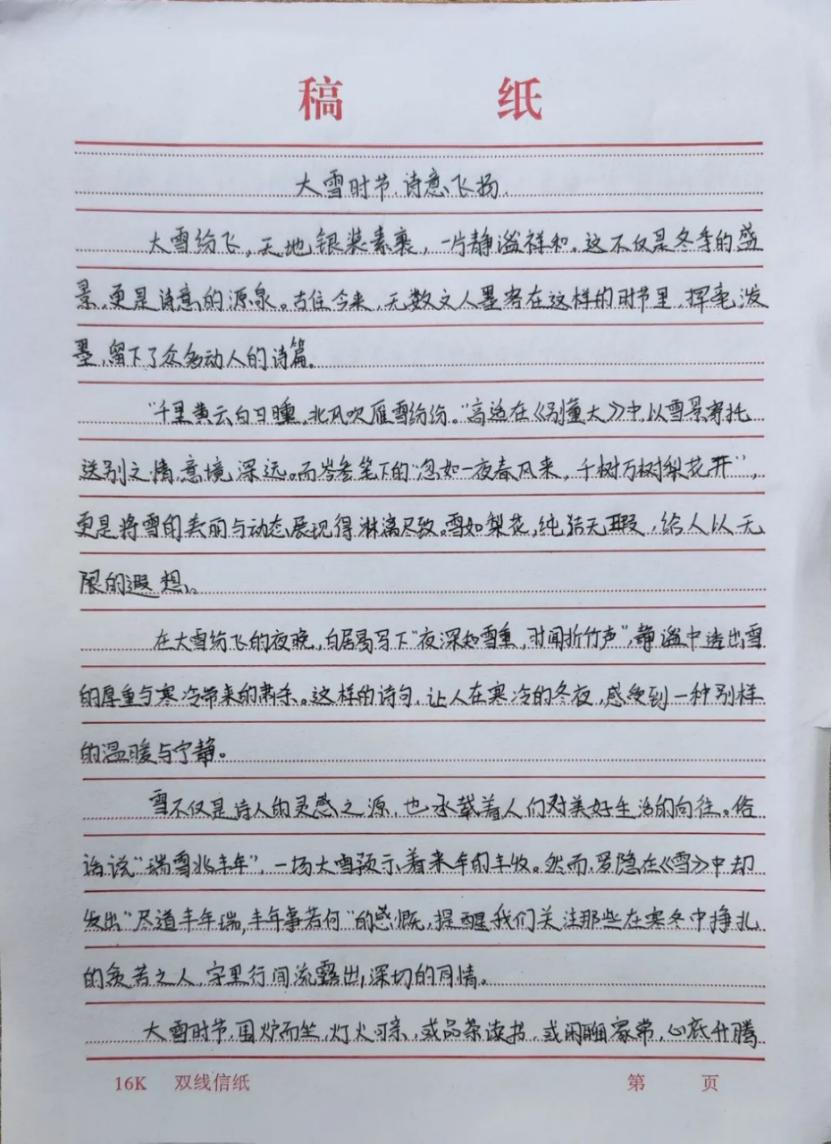 稿 纸
大雪时节,诗意飞扬
大雪纷飞,天地银装素裹,一片静谧祥和。这不仅是冬季的盛
景,更是诗意的源泉。古往今来,无数文人墨客在这样的时节里,挥毫泼
墨,留下了众多动人的诗篇。
“千里黄云白日曛,北风吹雁雪纷纷。”高适在《别董大》中以雪景寄托
送别之情,意境深远。而岑参笔下的“忽如一夜春风来,千树万树梨花开”,
更是将雪的美丽与动态展现得淋漓尽致。雪如梨花,纯洁无瑕,给人以无
限的遐想。
在大雪纷飞的夜晚,白居易写下“夜深知雪重,时闻折竹声”,静谧中透出雪
的厚重与寒冷带来的肃杀。这样的诗句,让人在寒冷的冬夜,感受到一种别样
的温暖与宁静。
雪不仅是诗人的灵感之源,也承载着人们对美好生活的向往。俗
话说“瑞雪兆丰年”,一场大雪预示着来年的丰收。然而,罗隐在《雪》中却
发出“尽道丰年瑞,丰年事若何”的感慨,提醒我们关注那些在寒冬中挣扎
的贫苦之人,字里行间流露出深切的同情。
大雪时节,围炉而坐,灯火可亲,或品茶读书,或闲聊家常,心底升腾
16K 双线信纸 第 页